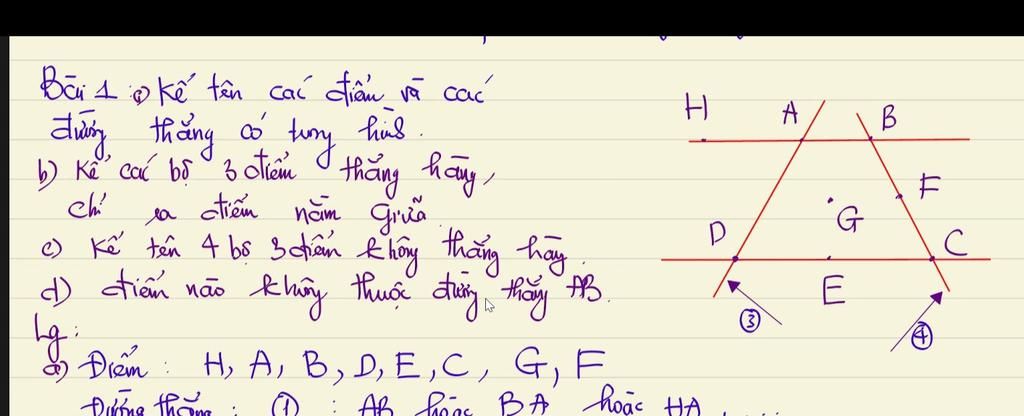 Bài 1 a) Kể tên các điểm và các
đường thẳng có trong hình.
b) Kể các bộ 3 điểm thẳng hàng,
chỉ ra điểm nằm giữa
c) Kể tên 4 bộ 3 điểm không thẳng hàng.
d) điểm nào không thuộc đường thẳng AB.
Lg:
a) Điểm: H, A, B, D, E, C, G, F
Đường thẳng: ① : AB hoặc BA hoặc HA
H A B
F
G
D C
E
③ ④